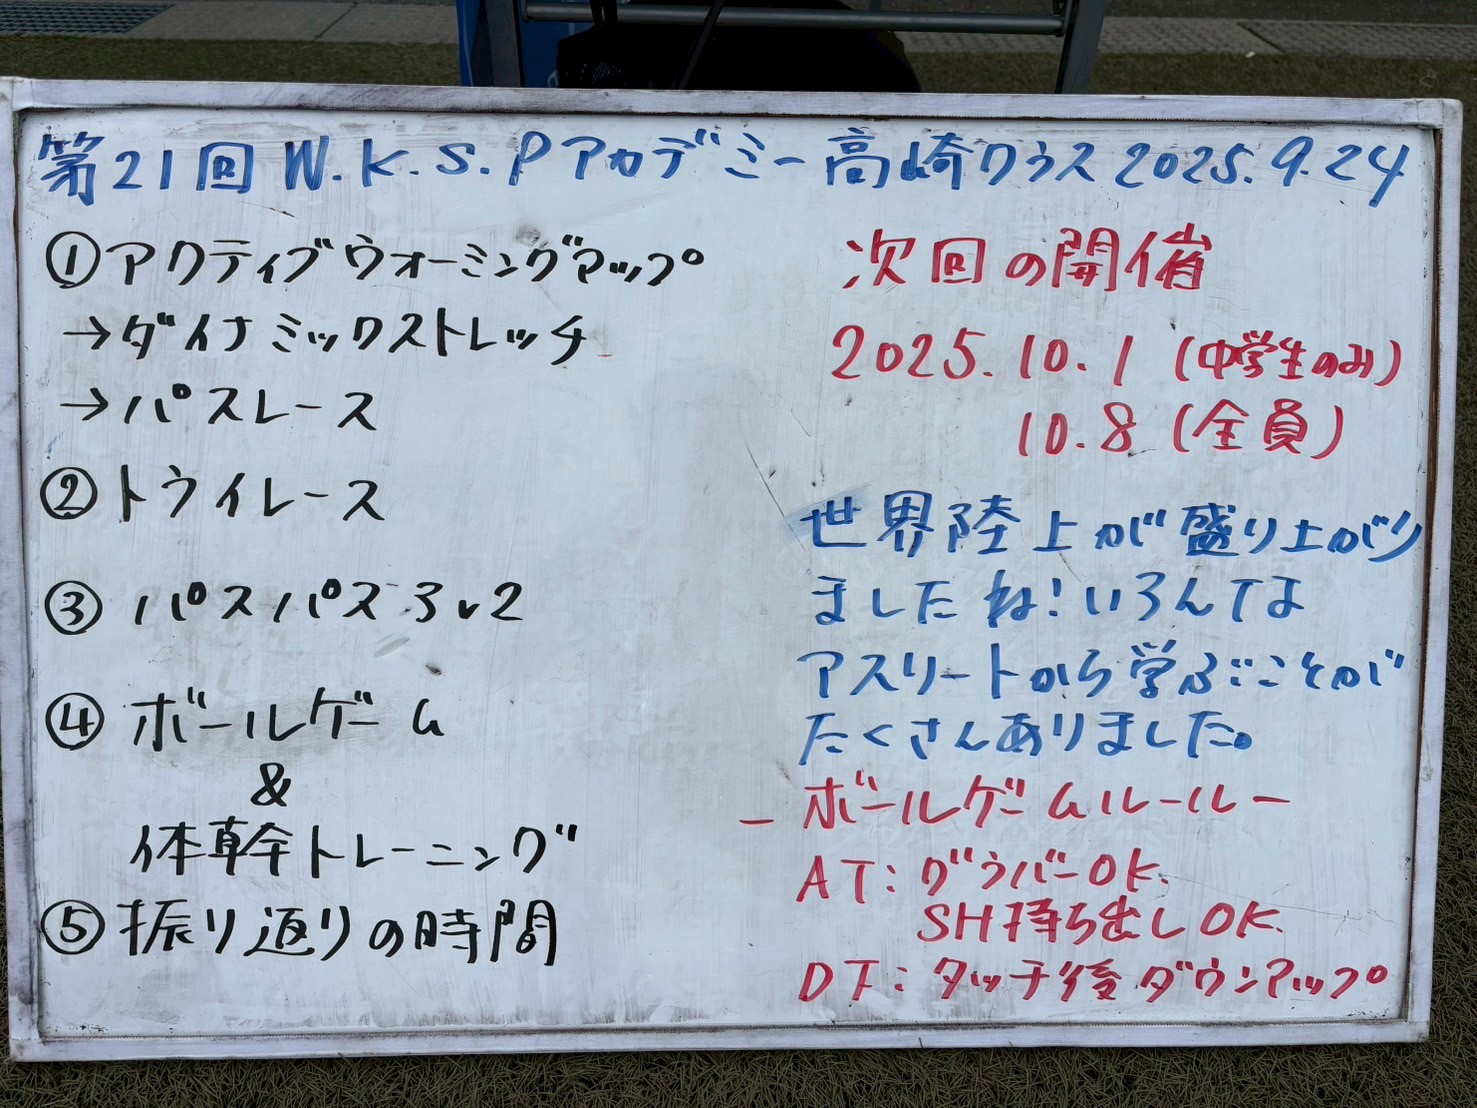 第21回 W.K.S.Pアカデミー高崎クラス 2025.9.24
①アクティブウォーミングアップ
→ダイナミックストレッチ
→パスレース
②トライレース
③パスパス3v2
④ボールゲーム
&
体幹トレーニング
⑤振り返りの時間
次回の開催
2025.10.1(中学生のみ)
10.8(全員)
世界陸上が盛り上がり
ましたね!いろんな
アスリートから学ぶことが
たくさんありました。
ボールゲームルールー
AT:グラバーOK.
SH持ち出しOK.
DF:タッチ後ダウンアップ